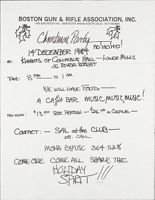 BOSTON GUN & RIFLE ASSOCIATION, INC.
Christmas Party
HO HO HO!
14 DECEMBER 1984
AT: KNIGHTS OF COLUMBUS HALL - LOWER MILLS
RIVER STREET
TIME: 8 PM - 1 AM
WE WILL HAVE FOOD
A CASH BAR MUSIC, MUSIC, MUSIC!
$13 PER PERSON / $26 A COUPLE
CONTACT - SAL AT THE CLUB
OR CALL
364
COME ONE COME ALL SHARE THE
HOLIDAY
SPIRIT!!!